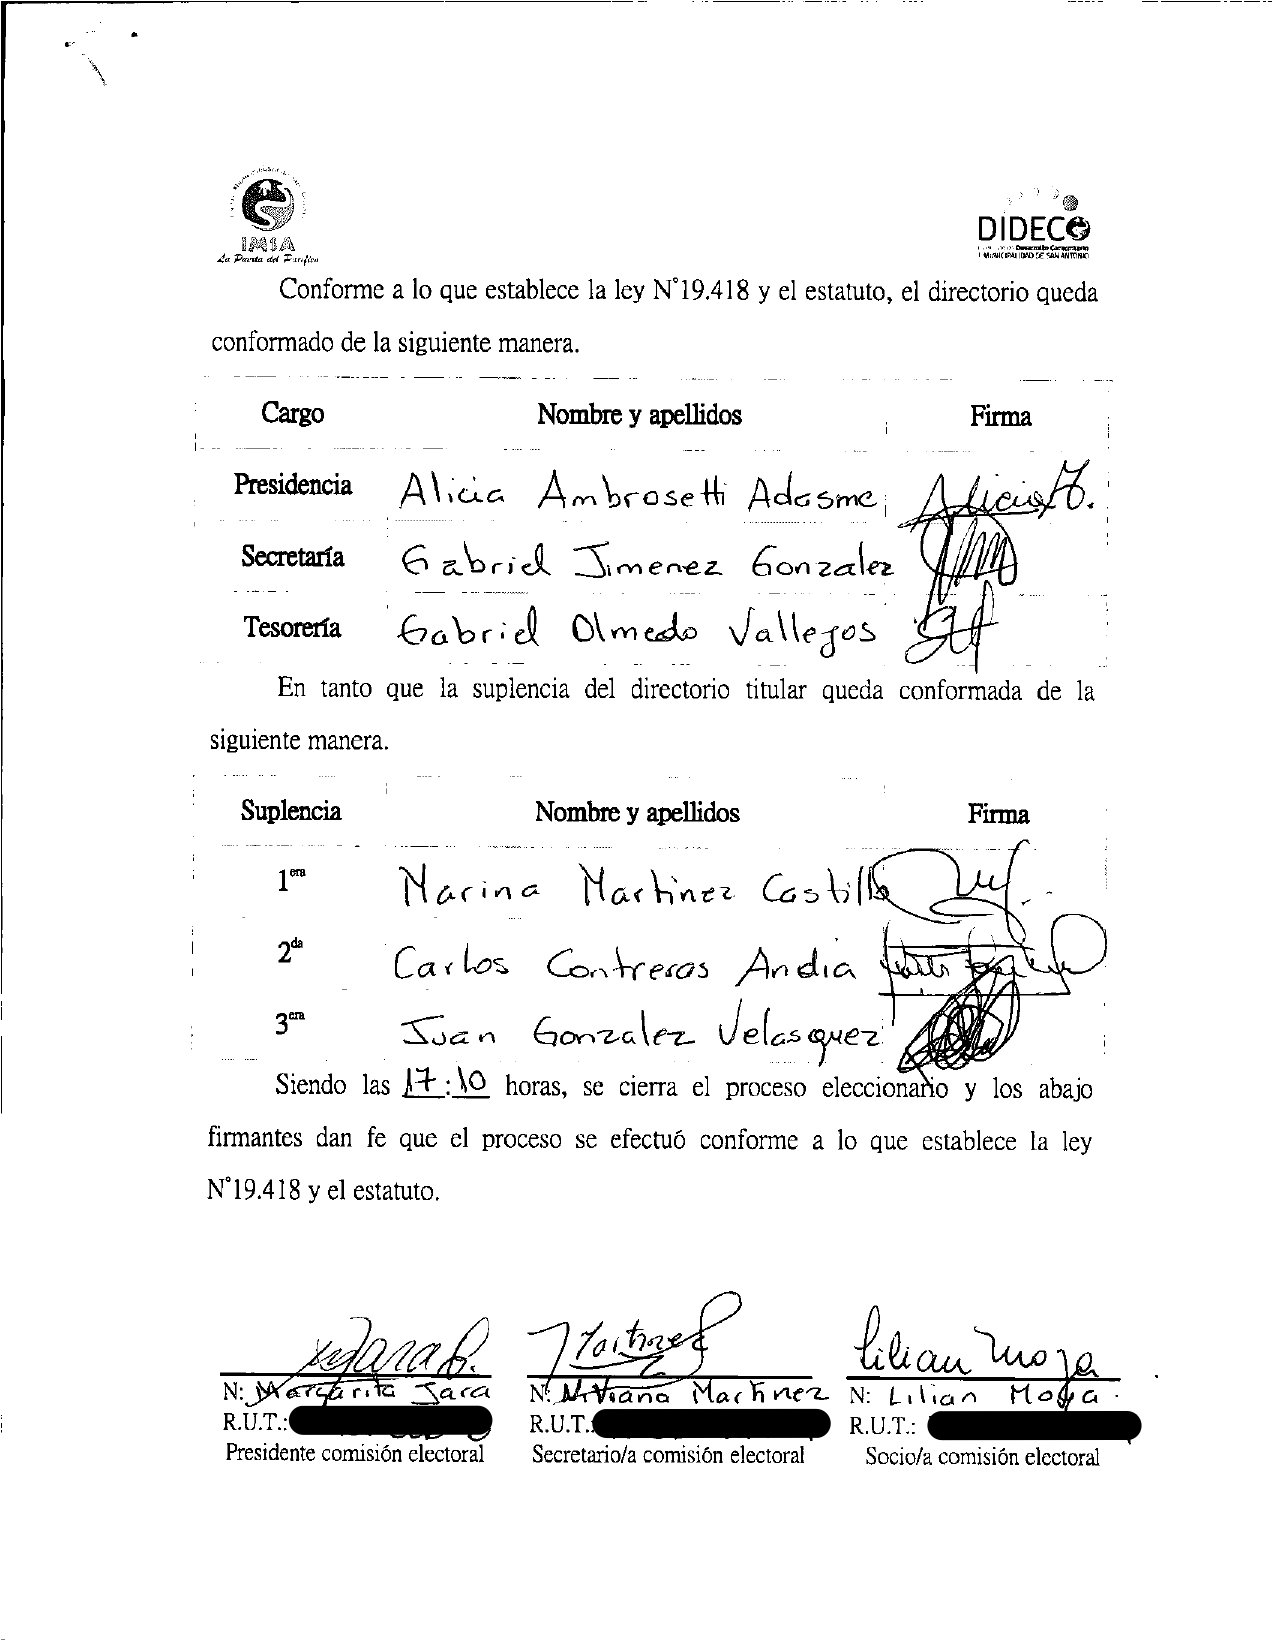 IMSA
La Puerta del Pacífico
DIDECO
MUNICIPALIDAD DE SAN ANTONIO
Conforme a lo que establece la ley N°19.418 y el estatuto, el directorio queda
conformado de la siguiente manera.
Cargo Nombre y apellidos Firma
Presidencia Alicia Ambrosetti Adasme Alicia A.
Secretaría Gabriel Jimenez Gonzalez
Tesorería Gabriel Olmedo Vallejos
En tanto que la suplencia del directorio titular queda conformada de la
siguiente manera.
Suplencia Nombre y apellidos Firma
1era Marina Martinez Castillo
2da Carlos Contreras Andia
3era Juan Gonzalez Velasquez
Siendo las 17:10 horas, se cierra el proceso eleccionario y los abajo
firmantes dan fe que el proceso se efectuó conforme a lo que establece la ley
N°19.418 y el estatuto.
Lilian Moya
N: Margarita Jara N: Viviana Martinez N: Lilian Moya
R.U.T.: R.U.T.: R.U.T.:
Presidente comisión electoral Secretario/a comisión electoral Socio/a comisión electoral